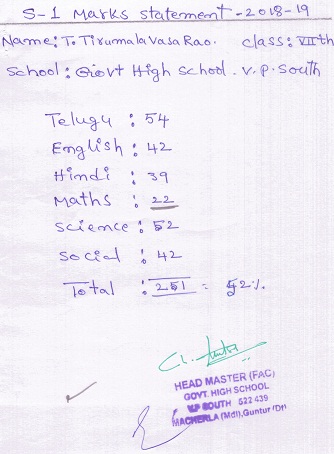 S-1 Marks Statement - 2018-19
Name: T. Tirumala Vasa Rao. class: VIIth
School: Govt High School. V.P. South
Telugu : 54
English : 42
Hindi : 39
Maths : 22
Science : 52
Social : 42
Total : 251 = 52%
HEAD MASTER (FAC)
GOVT. HIGH SCHOOL
V.P SOUTH 522 439
MACHERLA (Mdl), Guntur (Dt)